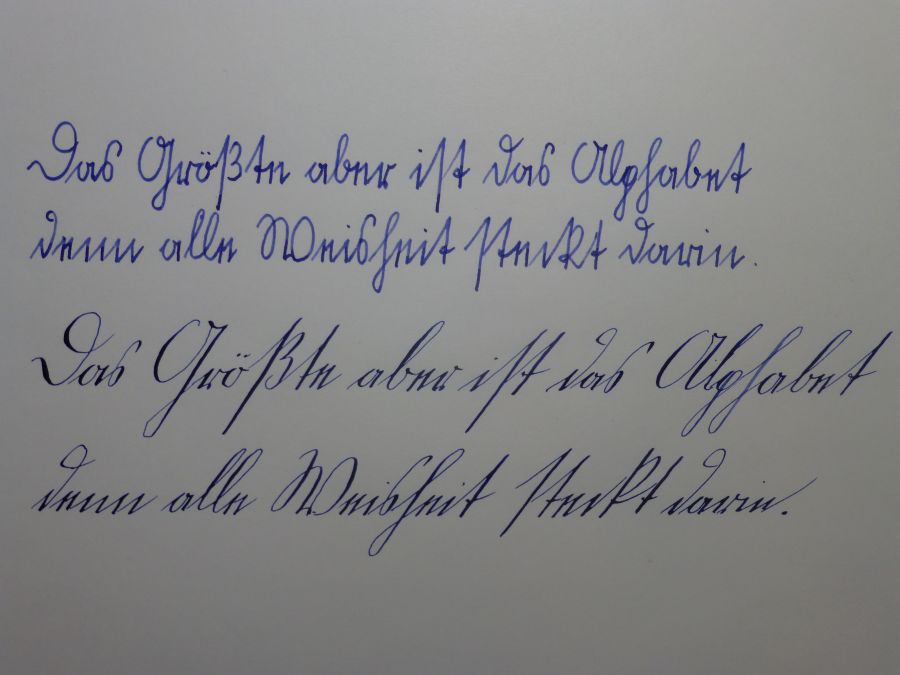 Das Größte aber ist das Alphabet
denn alle Weisheit steckt darin.
Das Größte aber ist das Alphabet
denn alle Weisheit steckt darin.